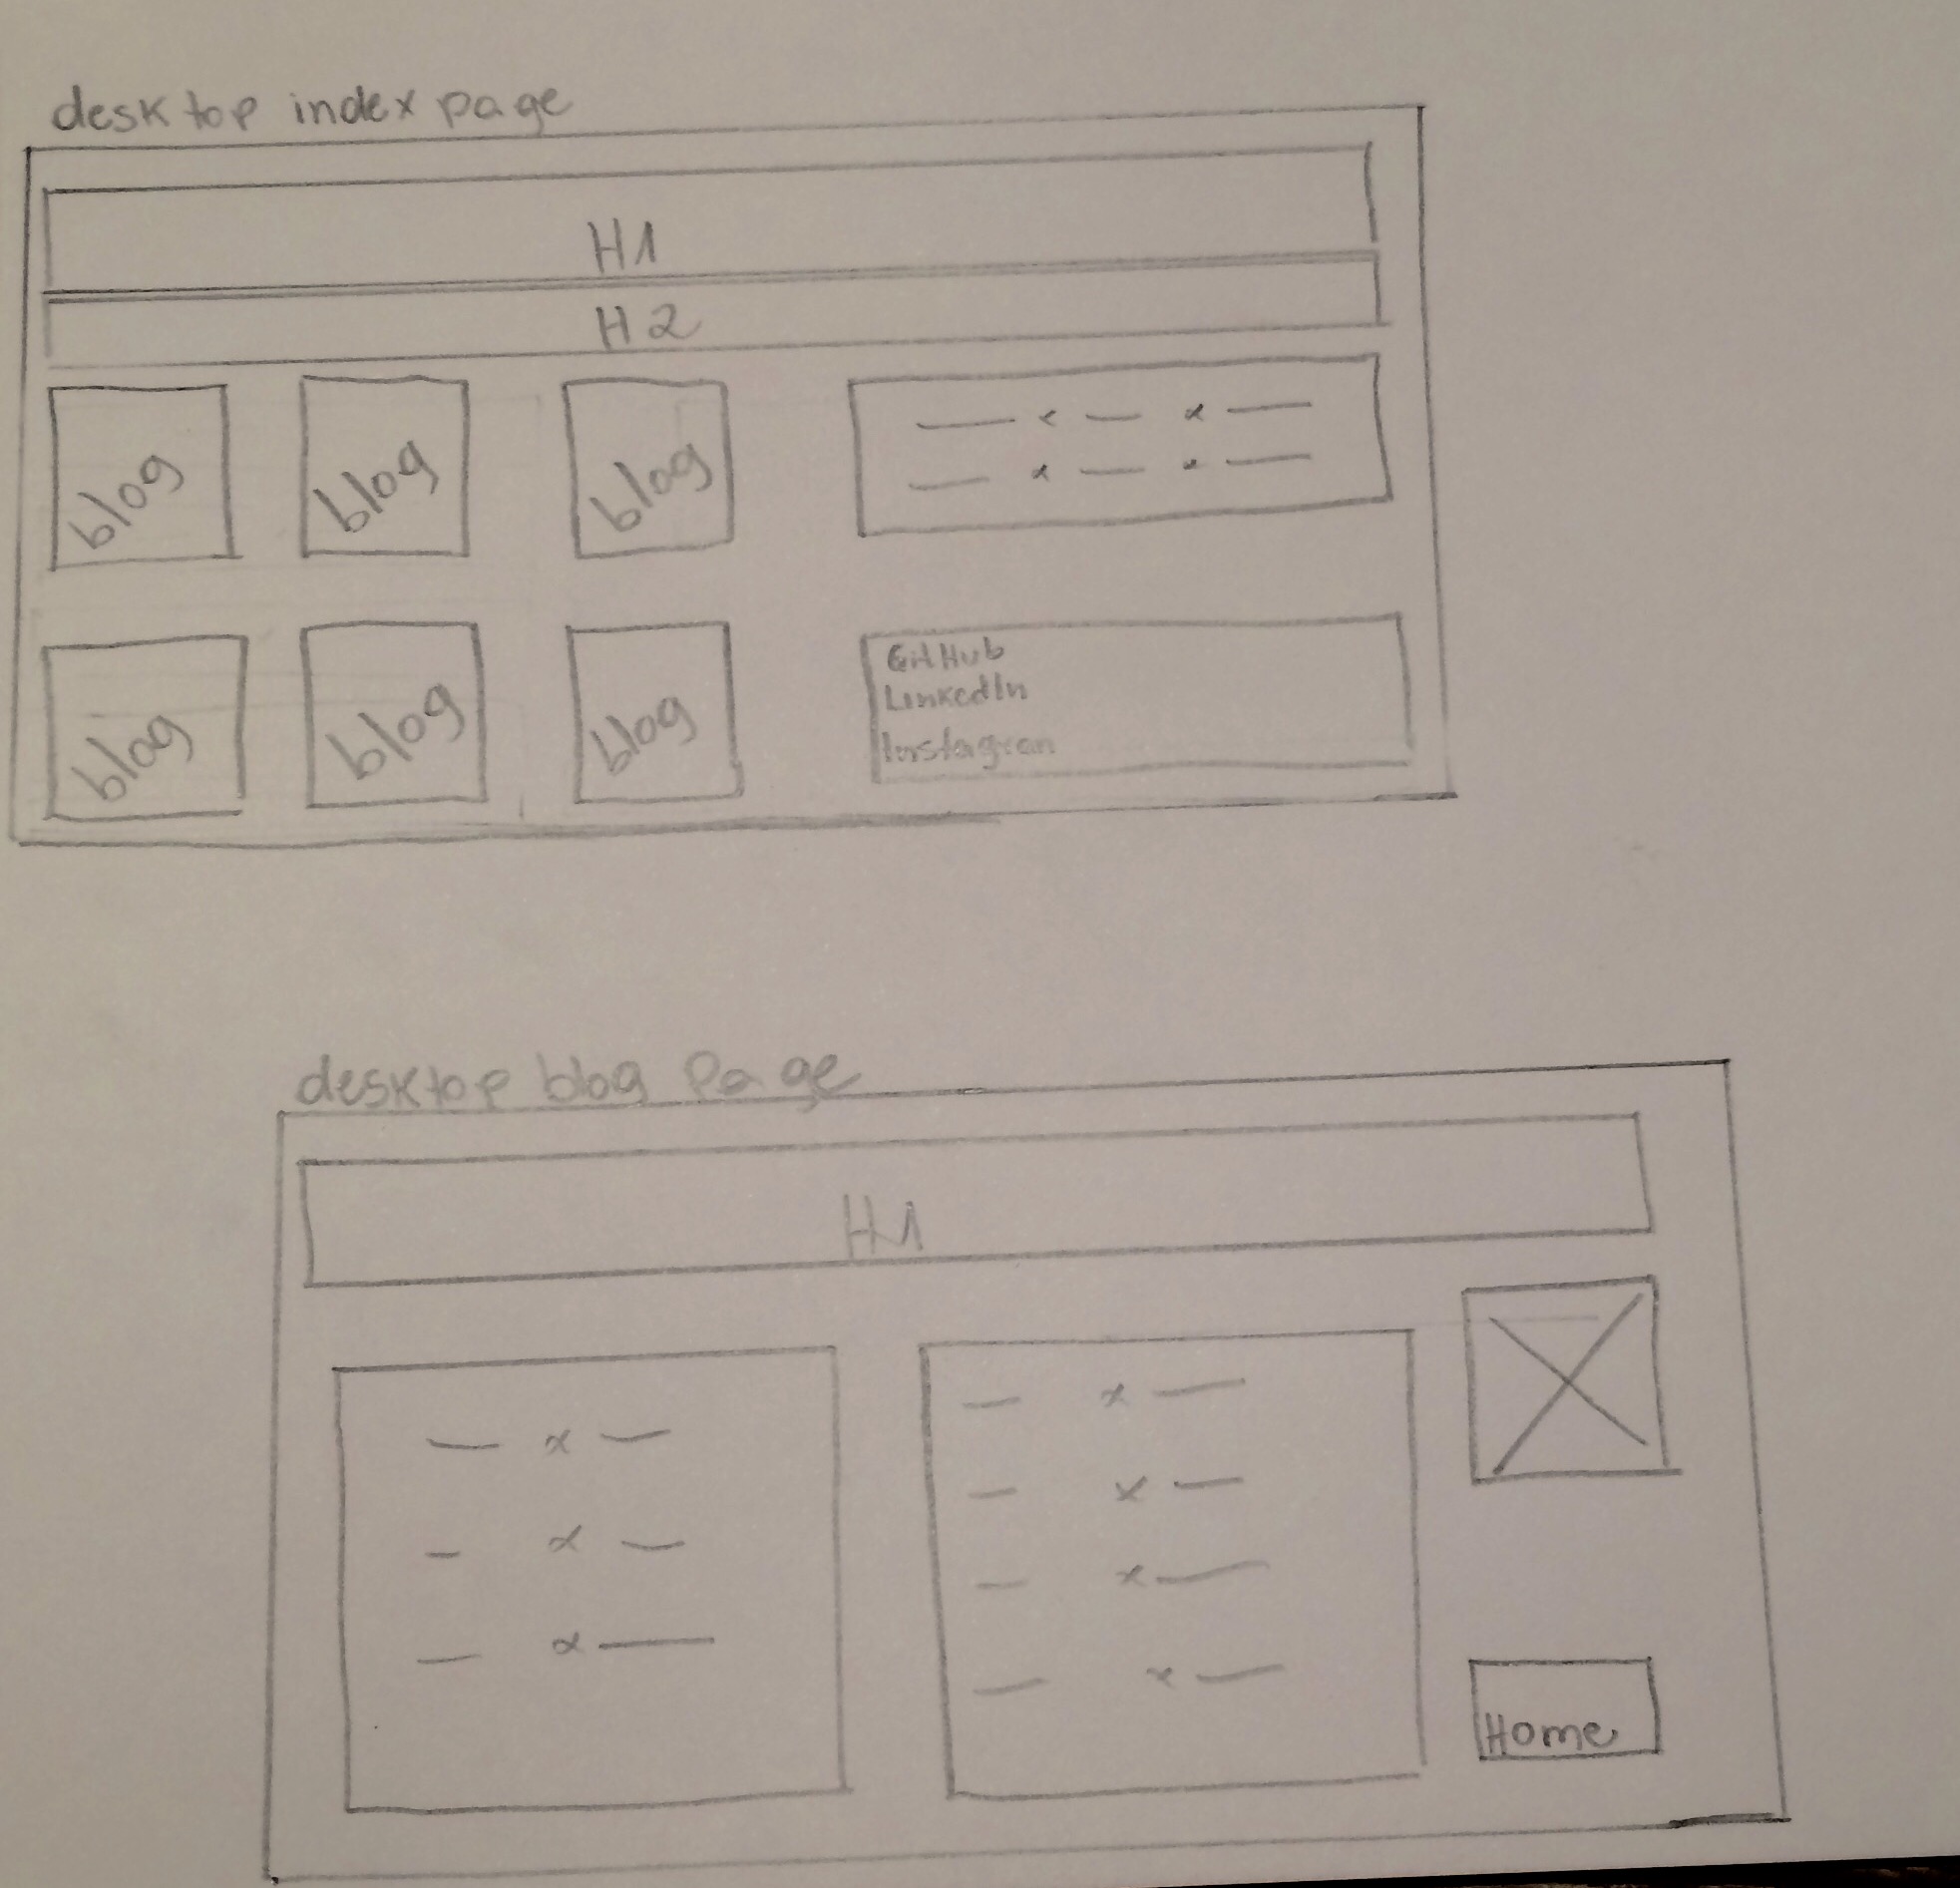 desktop index page
H1
H2
blog blog blog
blog blog blog
GitHub
LinkedIn
Instagram
desktop blog Page
H1
Home